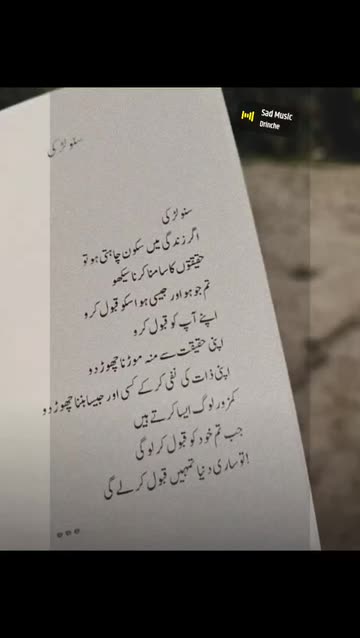 Sad Music
Drinche
سنو لڑکی
سنو لڑکی
اگر زندگی میں سکون چاہتی ہو تو
حقیقتوں کا سامنا کرنا سیکھو
تم جو ہو اور جیسی ہو اسکو قبول کرو
اپنے آپ کو قبول کرو
اپنی حقیقت سے منہ موڑنا چھوڑ دو
اپنی ذات کی نفی کر کے کسی اور جیسا بننا چھوڑ دو
کمزور لوگ ایسا کرتے ہیں
جب تم خود کو قبول کر لو گی
تو ساری دنیا تمہیں قبول کر لے گی!